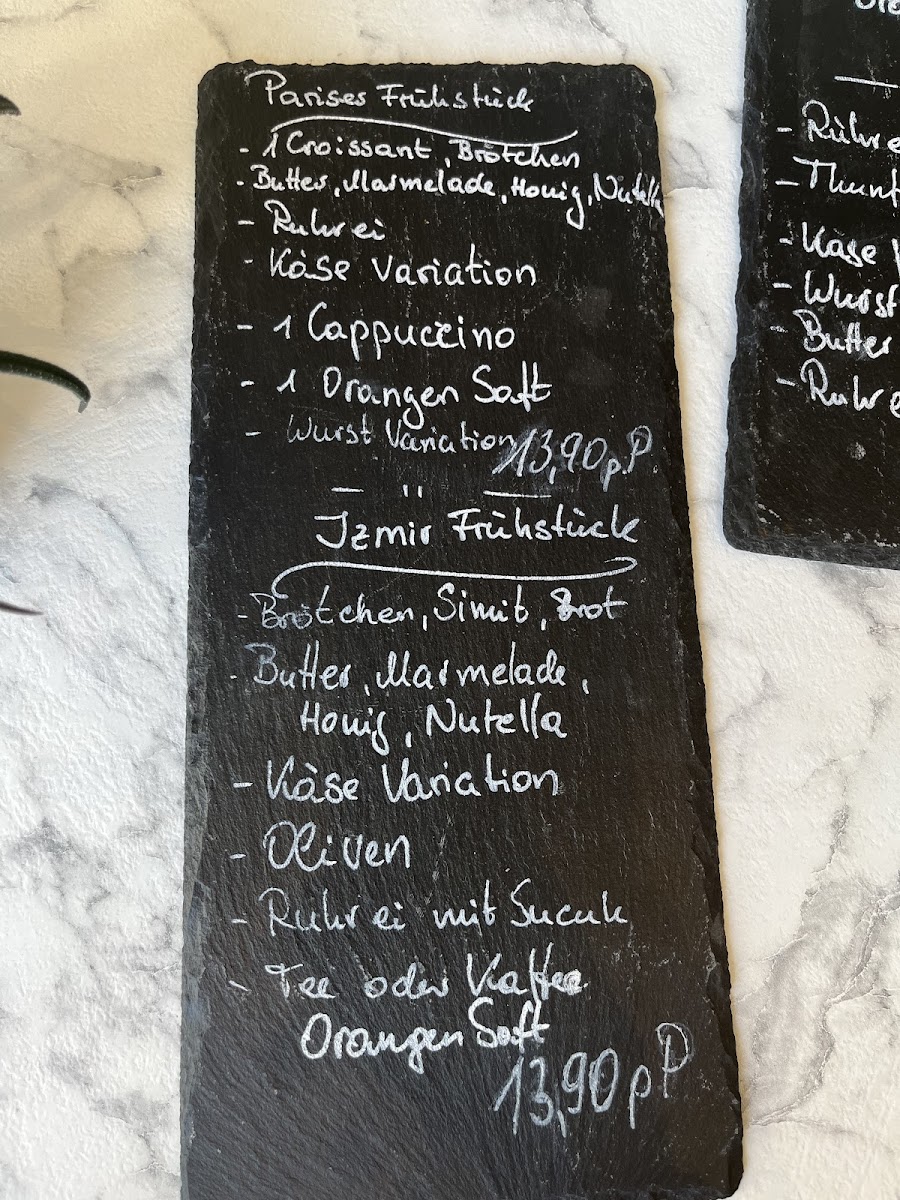 Pariser Frühstück
- 1 Croissant, Brötchen
- Butter, Marmelade, Honig, Nutella
- Ruhrei
- Käse Variation
- 1 Cappuccino
- 1 Orangen Saft
- Wurst Variation
13,90 p.P.
Izmir Frühstück
- Brötchen, Simit, Brot
- Butter, Marmelade,
Honig, Nutella
- Käse Variation
- Oliven
- Ruhrei mit Sucuk
- Tee oder Kaffee
Orangen Saft
13,90 pP
- Rühre
- Thunf
- Käse V
- Wurst
- Butter
- Ruhre